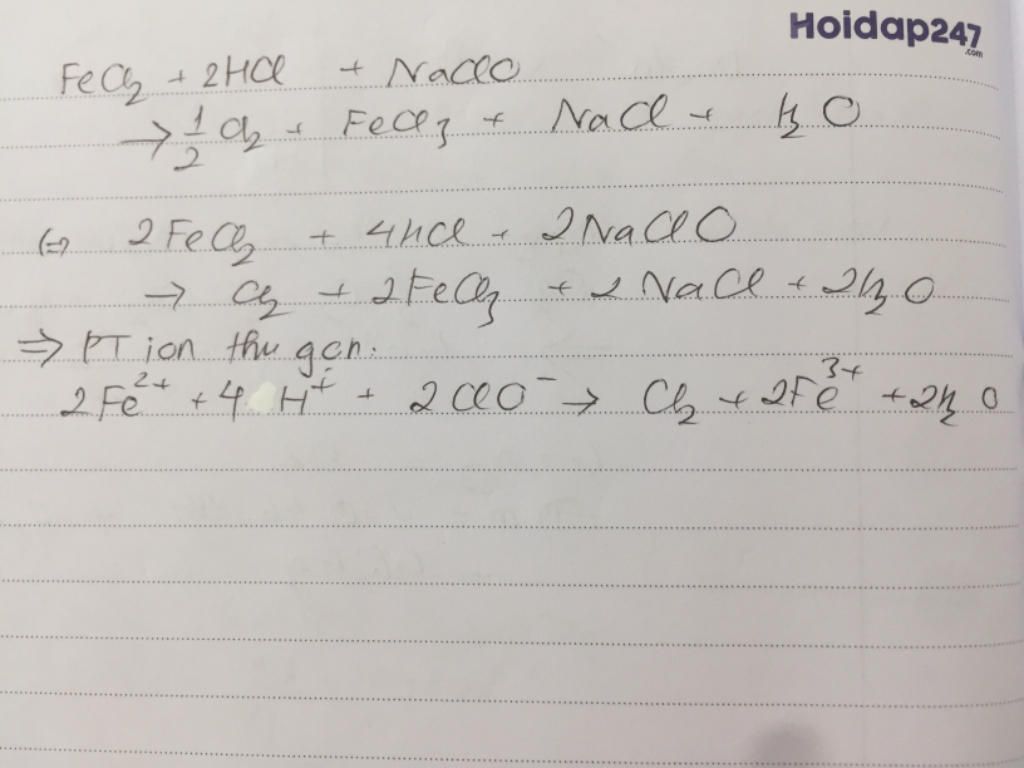 Hoidap247
.com
FeCl₂ + 2HCl + NaClO
→ 1/2 Cl₂ + FeCl₃ + NaCl + H₂O
(=) 2FeCl₂ + 4HCl + 2NaClO
→ Cl₂ + 2FeCl₃ + 2NaCl + 2H₂O
⇒ PT ion thu gọn:
2Fe²⁺ + 4H⁺ + 2ClO⁻ → Cl₂ + 2Fe³⁺ + 2H₂O